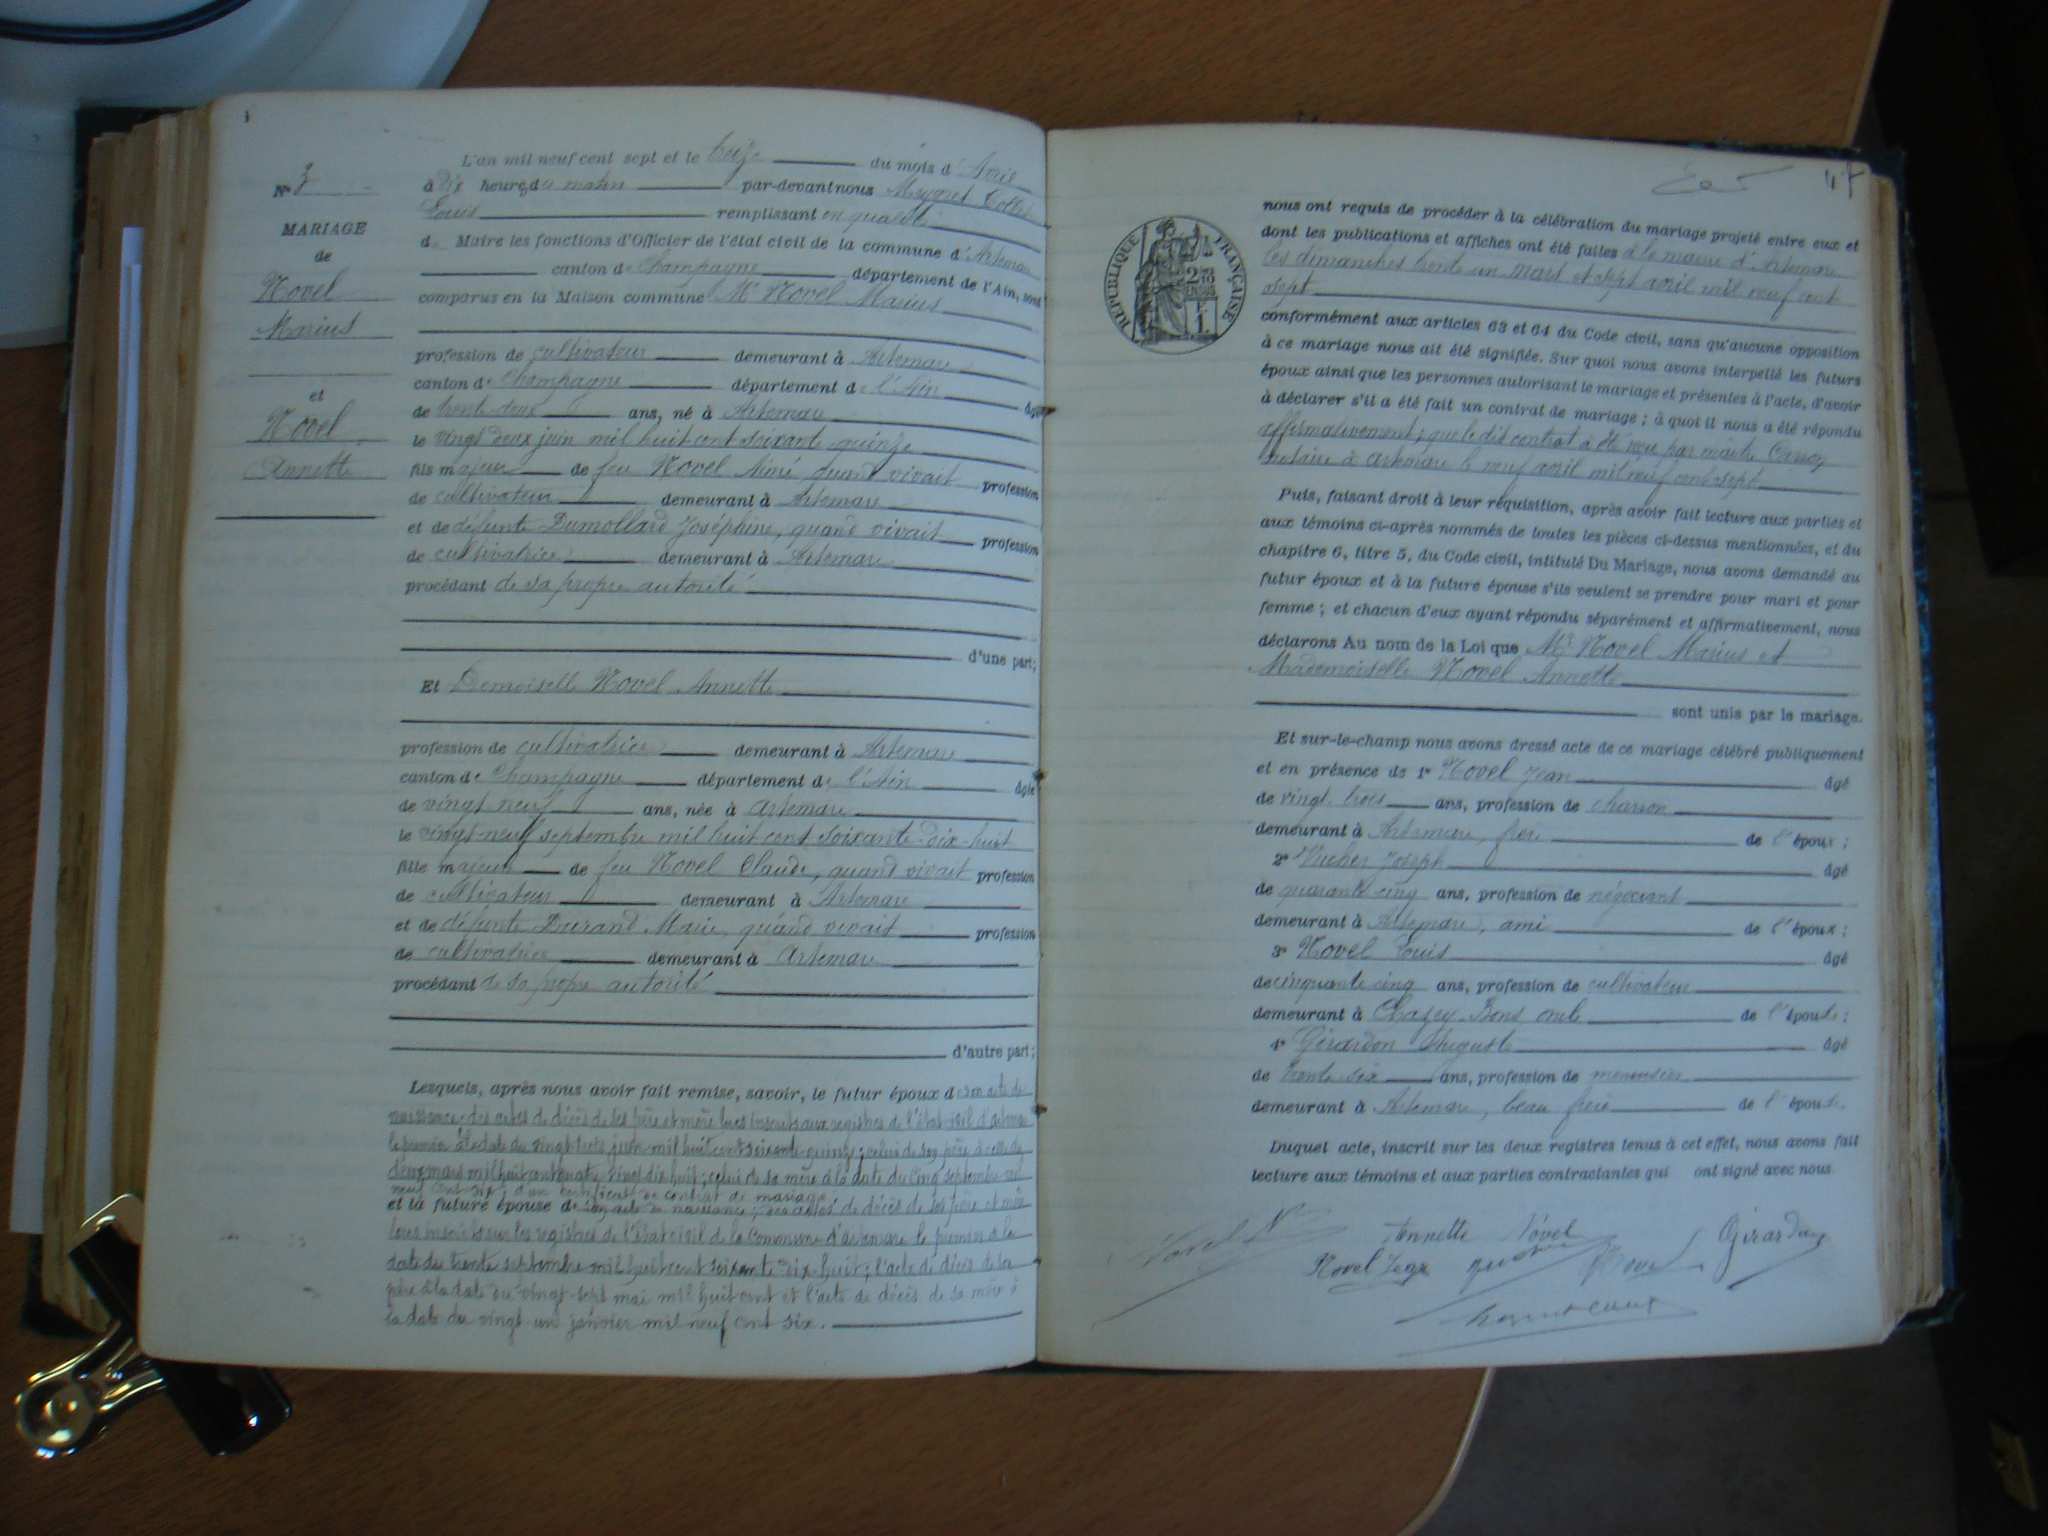 L'an mil neuf cent sept et le treize du mois d'Avril
N° 3
à dix heures du matin par-devant nous Meygret Collet
Louis remplissant en qualité
MARIAGE
de
d. Maire les fonctions d'Officier de l'état civil de la commune d'Artemare
canton de Champagne département de l'Ain, sont
Novel
Marius
comparus en la Maison commune Mr Novel Marius
profession de cultivateur demeurant à Artemare
canton de Champagne département de l'Ain âgé
et
Novel
Annette
de trente-deux ans, né à Artemare
le vingt deux juin mil huit cent soixante quinze
fils majeur de feu Novel Aimé quand vivait profession
de cultivateur demeurant à Artemare
et de défunte Dumollard Joséphine, quand vivait profession
de cultivatrice demeurant à Artemare
procédant de sa propre autorité
d'une part;
Et Demoiselle Novel Annette
profession de cultivatrice demeurant à Artemare
canton de Champagne département de l'Ain âgée
de vingt neuf ans, née à Artemare
le vingt-neuf septembre mil huit cent soixante-dix-huit
fille majeure de feu Novel Claude, quand vivait profession
de cultivateur demeurant à Artemare
et de défunte Durand Marie, quand vivait profession
de cultivatrice demeurant à Artemare
procédant de sa propre autorité
d'autre part;
Lesquels, après nous avoir fait remise, savoir, le futur époux d son acte de
naissance, des actes de décès de ses père et mère tous inscrits aux registres de l'état civil d'Artemare
le premier à la date du vingt trois juin mil huit cent soixante quinze; celui de son père à celle du
deux mars mil huit cent quatre vingt dix huit; celui de sa mère à la date du cinq septembre mil
neuf cent six; d'un certificat de contrat de mariage
et la future épouse de son acte de naissance; des actes de décès de ses père et mère
tous inscrits sur les registres de l'état civil de la Commune d'Artemare le premier à la
date du trente septembre mil huit cent soixante dix-huit; l'acte de décès de son
père à la date du vingt-sept mai mil huit cent et l'acte de décès de sa mère à
la date du vingt un janvier mil neuf cent six.
45
RÉPUBLIQUE FRANÇAISE
nous ont requis de procéder à la célébration du mariage projeté entre eux et
dont les publications et affiches ont été faites à la mairie d'Artemare
les dimanches trente un mars et sept avril mil neuf cent
sept
conformément aux articles 63 et 64 du Code civil, sans qu'aucune opposition
à ce mariage nous ait été signifiée. Sur quoi nous avons interpellé les futurs
époux ainsi que les personnes autorisant le mariage et présentes à l'acte, d'avoir
à déclarer s'il a été fait un contrat de mariage; à quoi il nous a été répondu
affirmativement; que le dit contrat a été reçu par maître
notaire à Artemare le neuf avril mil neuf cent sept
Puis, faisant droit à leur réquisition, après avoir fait lecture aux parties et
aux témoins ci-après nommés de toutes les pièces ci-dessus mentionnées, et du
chapitre 6, titre 5, du Code civil, intitulé Du Mariage, nous avons demandé au
futur époux et à la future épouse s'ils veulent se prendre pour mari et pour
femme; et chacun d'eux ayant répondu séparément et affirmativement, nous
déclarons Au nom de la Loi que Mr Novel Marius et
Mademoiselle Novel Annette
sont unis par le mariage.
Et sur-le-champ nous avons dressé acte de ce mariage célébré publiquement
et en présence de 1° Novel Jean âgé
de vingt trois ans, profession de charron
demeurant à Artemare, frère de l'époux;
2° Vucher Joseph âgé
de quarante cinq ans, profession de négociant
demeurant à Artemare, ami de l'époux;
3° Novel Louis âgé
de cinquante cinq ans, profession de cultivateur
demeurant à Chazey-Bons oncle de l'épouse;
4° Girardon Auguste âgé
de trente six ans, profession de menuisier
demeurant à Artemare, beau frère de l'épouse.
Duquel acte, inscrit sur les deux registres tenus à cet effet, nous avons fait
lecture aux témoins et aux parties contractantes qui ont signé avec nous
Novel Annette Novel Girardon
Novel Jean